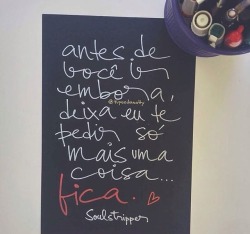 antes de
você ir
embora,
deixa eu te
pedir só
mais uma
coisa...
fica.
Soulstripper